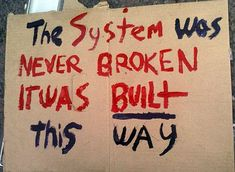 The System was
NEVER BROKEN
IT WAS BUILT
This WAY